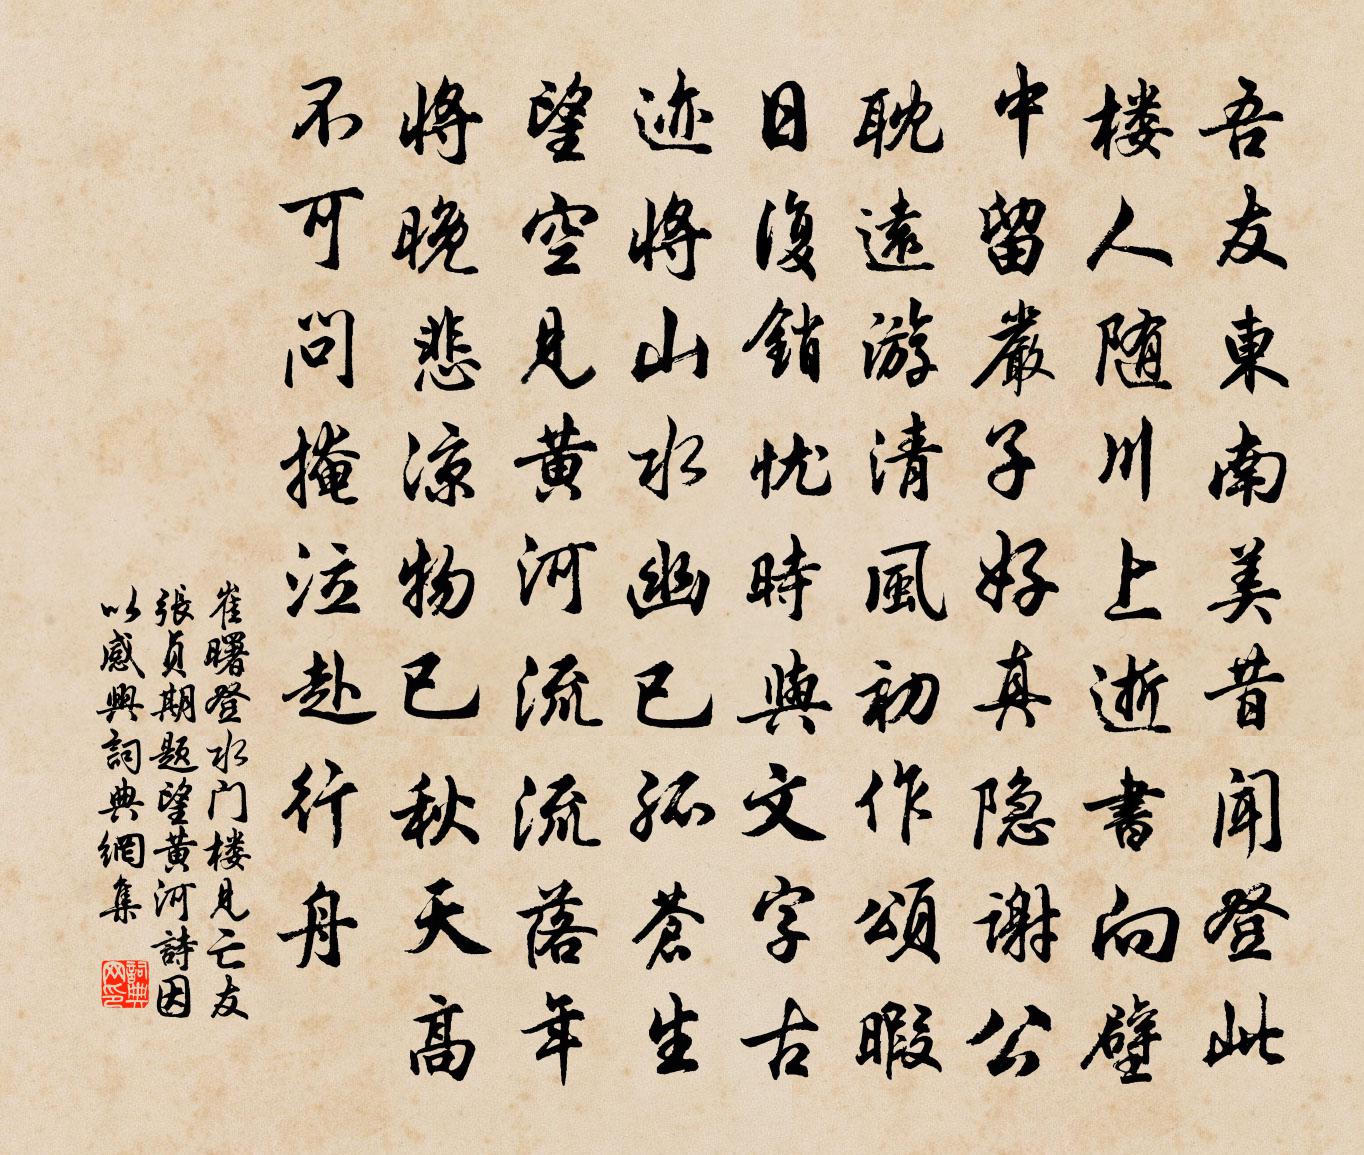 吾友東南美昔聞登此
楼人随川上逝書向壁
中留嚴子好真隐謝公
耽遠游清風初作頌暇
日復銷忧時與文字古
迹将山水幽已孤蒼生
望空見黄河流流落年
将晚悲涼物已秋天高
不可問掩泣赴行舟
崔曙登水门楼見亡友
張貞期题望黄河詩因
以感興詞典網集
詞典网印